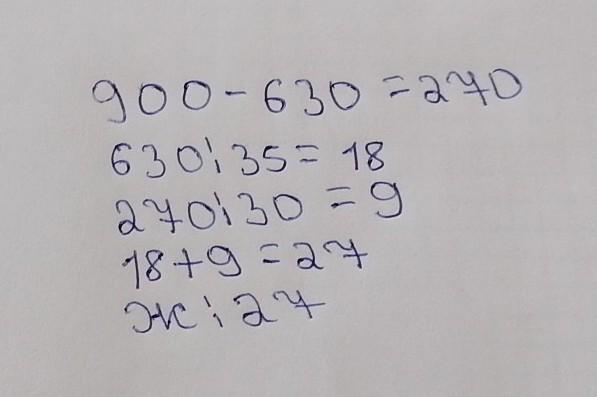 900-630=270
630:35=18
270:30=9
18+9=27
ж:27